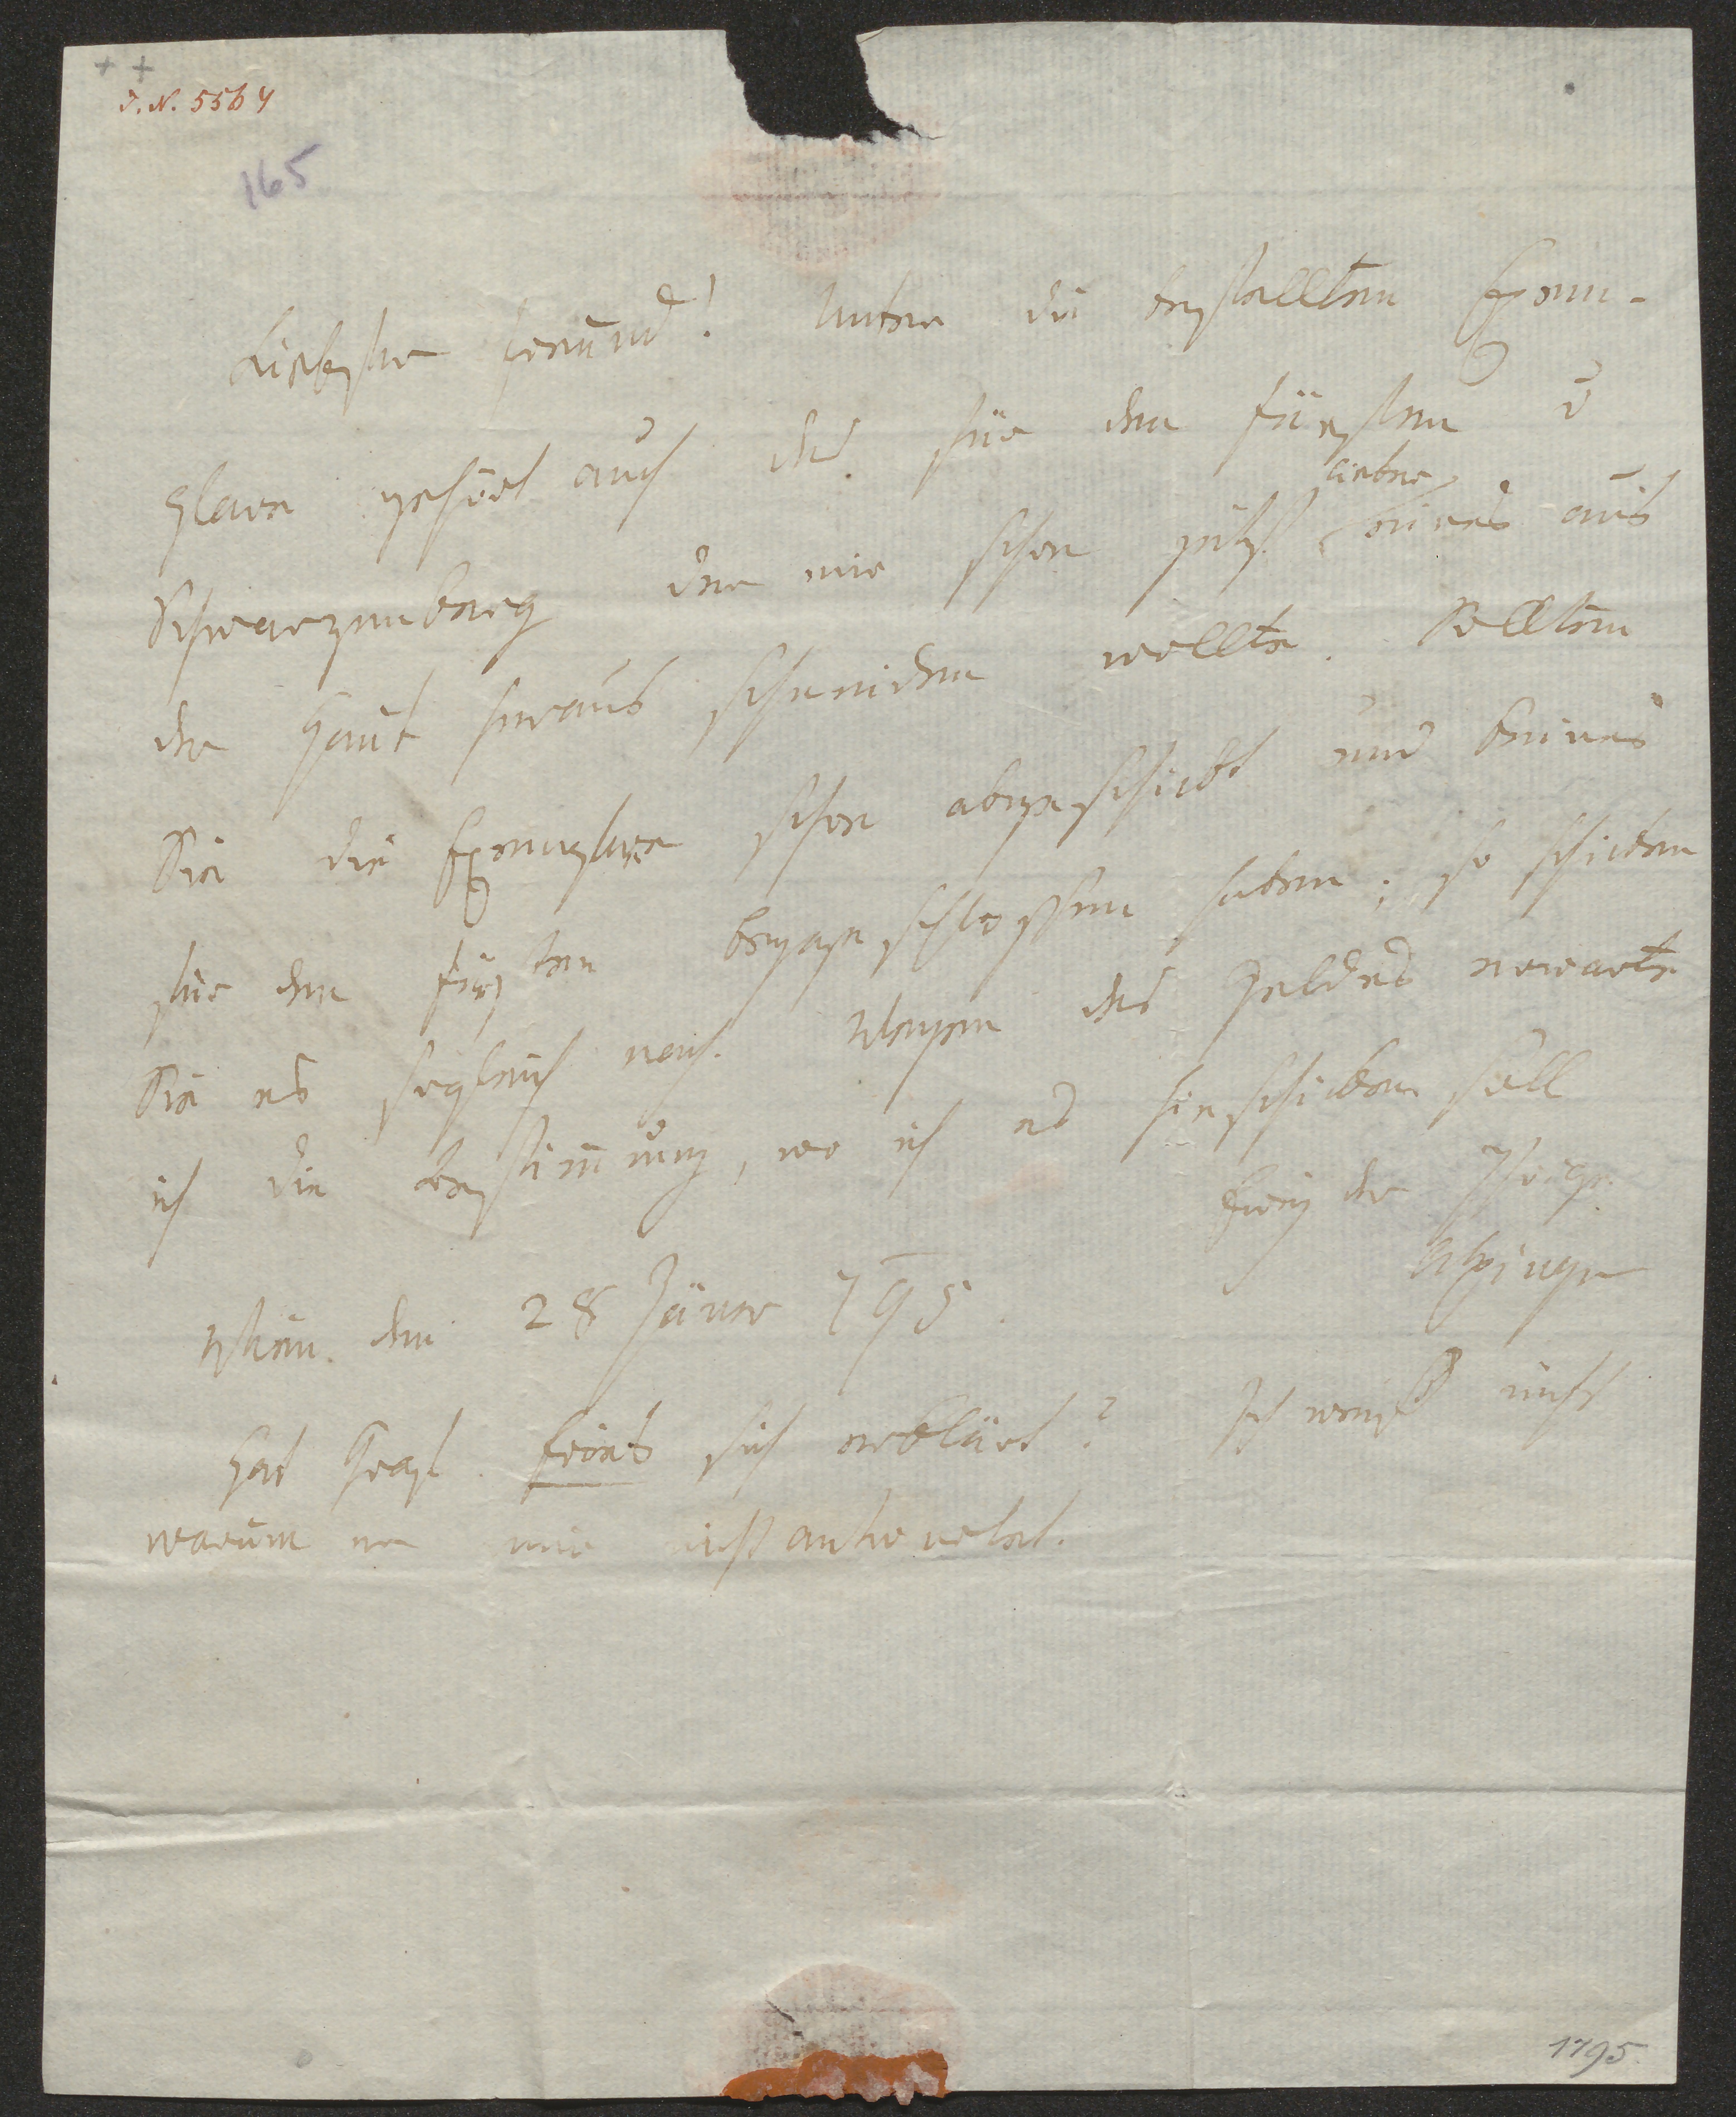 I. N. 5564
165
Liebster Freund! Unter die bestellten Exem-
plare gehört auch das für den Fürsten v
Schwarzenberg der mir schon jüngst lieber eines aus
der Haut heraus schneiden wollte. Sollten
Sie die Exemplare schon abgeschickt und keines
für den Fürsten beygeschlossen haben; so schicken
Sie es sogleich nach. Wegen des Geldes erwarte
ich die Bestimmung, wo ich es hinschicken soll
Ewig der Ihrige
Alxinger
Wien. den 28 Jäner 795.
Hat Graf Fries sich erklärt? Ich weiß nicht
warum er mir nicht antwortet.
1795.